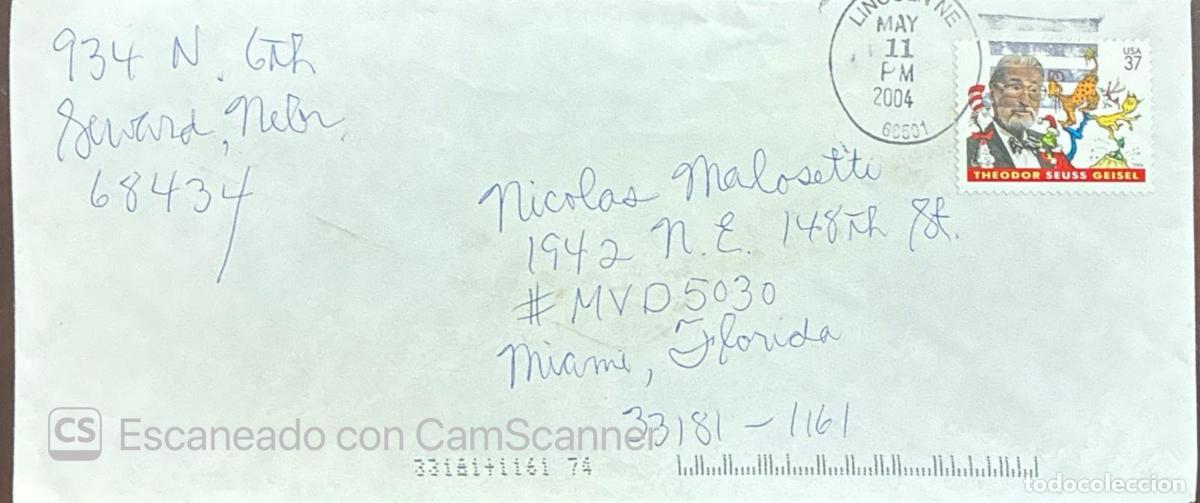 934 N. 6th
Seward, Nebr.
68434
LINCOLN NE
MAY
11
PM
2004
68501
USA
37
THEODOR SEUSS GEISEL
Nicolas Malosetti
1942 N.E. 148th St.
#MVD5030
Miami, Florida
33181-1161
CS Escaneado con CamScanner
33181+1161 74
todocoleccion